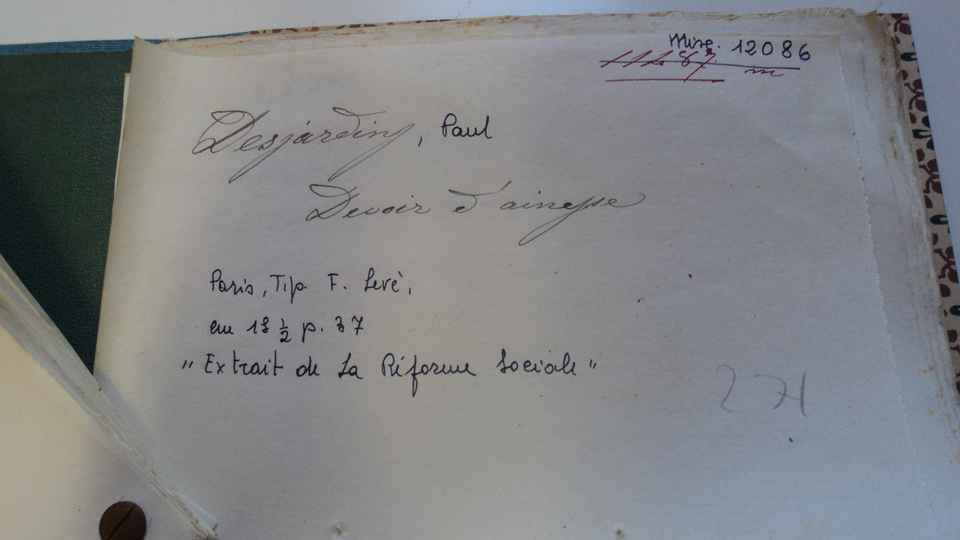 Misc. 12086
Desjardins, Paul
Devoir d'ainesse
Paris, Tip. F. Levé,
p. 37
"Extrait de La Réforme Sociale"
271